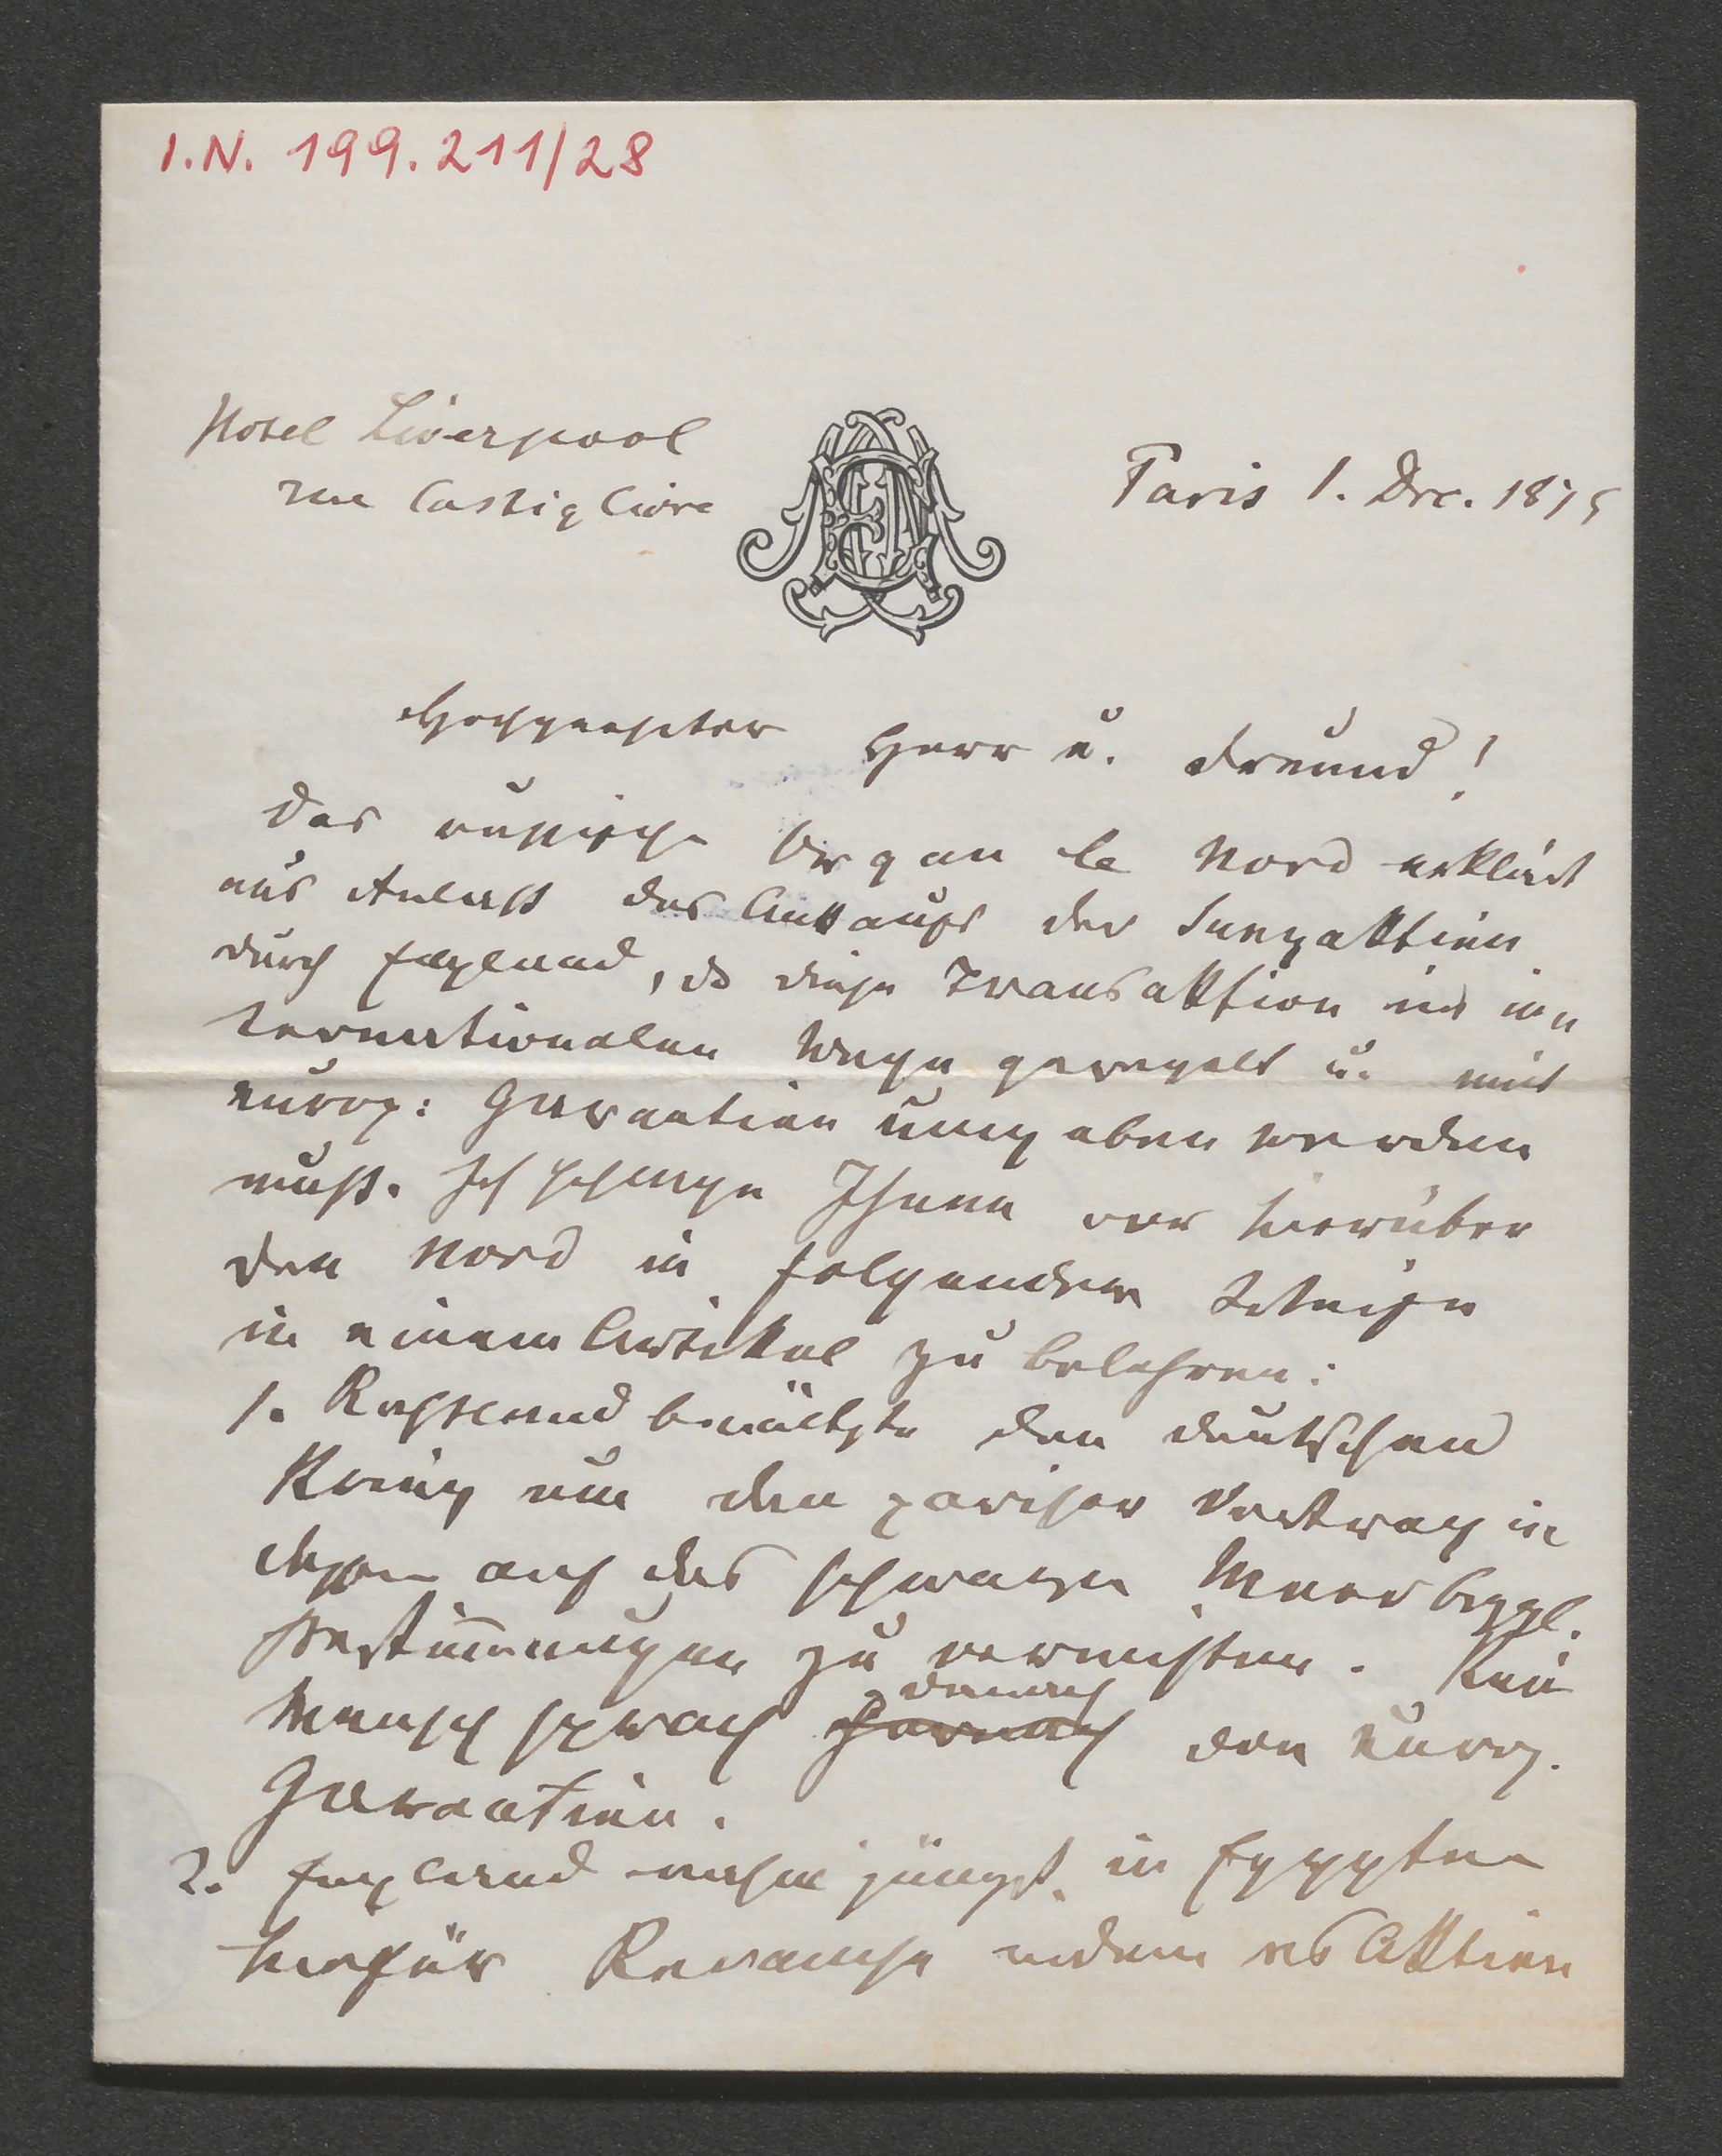 I.N. 199.211/28
Hotel Liverpool
rue Castiglione
Paris 1. Dec. 1875
Hochgeehrter Herr u. Freund!
Das russische Organ le Nord erklärt
aus Anlaß des Ankaufs der Suezaktien
durch England, daß diese Transaktion im in
ternationalen Wege geregelt u. mit
europ: Garantien umgeben werden
muß. Ich schlage Ihnen vor hierüber
den Nord in folgender Weise
in einem Artikel zu belehren:
1. Rußland benützte den deutschen
Krieg um den pariser Vertrag in
dessen auf das schwarze Meer bezgl.
Bestimmungen zu vernichten. Kein
Mensch sprach danach von europ.
Garantien.
2. England nahm jüngst in Egypten
hiefür Revanche indem es Aktien